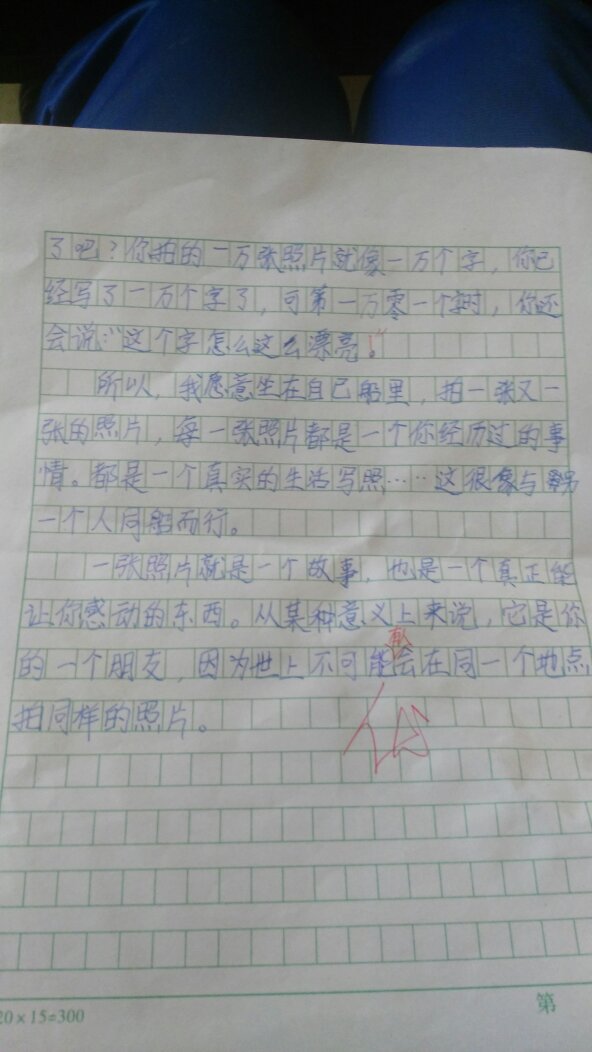 了吧？你拍的一万张照片就像一万个字，你已
经写了一万个字了，可第一万零一个字时，你还
会说：“这个字怎么这么漂亮。”
所以，我愿意坐在自己船里，拍一张又一
张的照片，每一张照片都是一个你经历过的事
情。都是一个真实的生活写照……这很像与
一个人同船而行。
一张照片就是一个故事，也是一个真正能
让你感动的东西。从某种意义上来说，它是你
的一个朋友，因为世上不可能会在同一个地点
拍同样的照片。
20×15=300
第